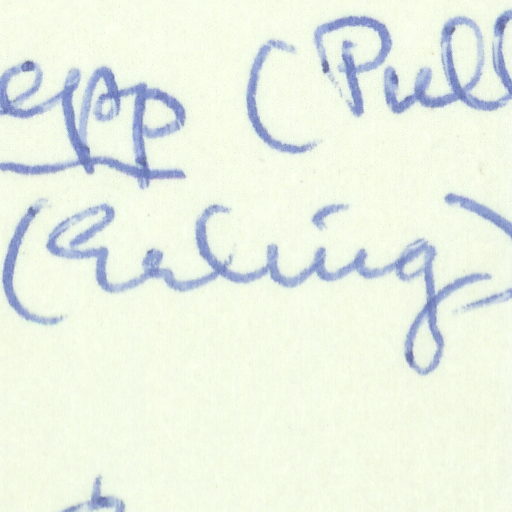 epp (Pull
(Erling)